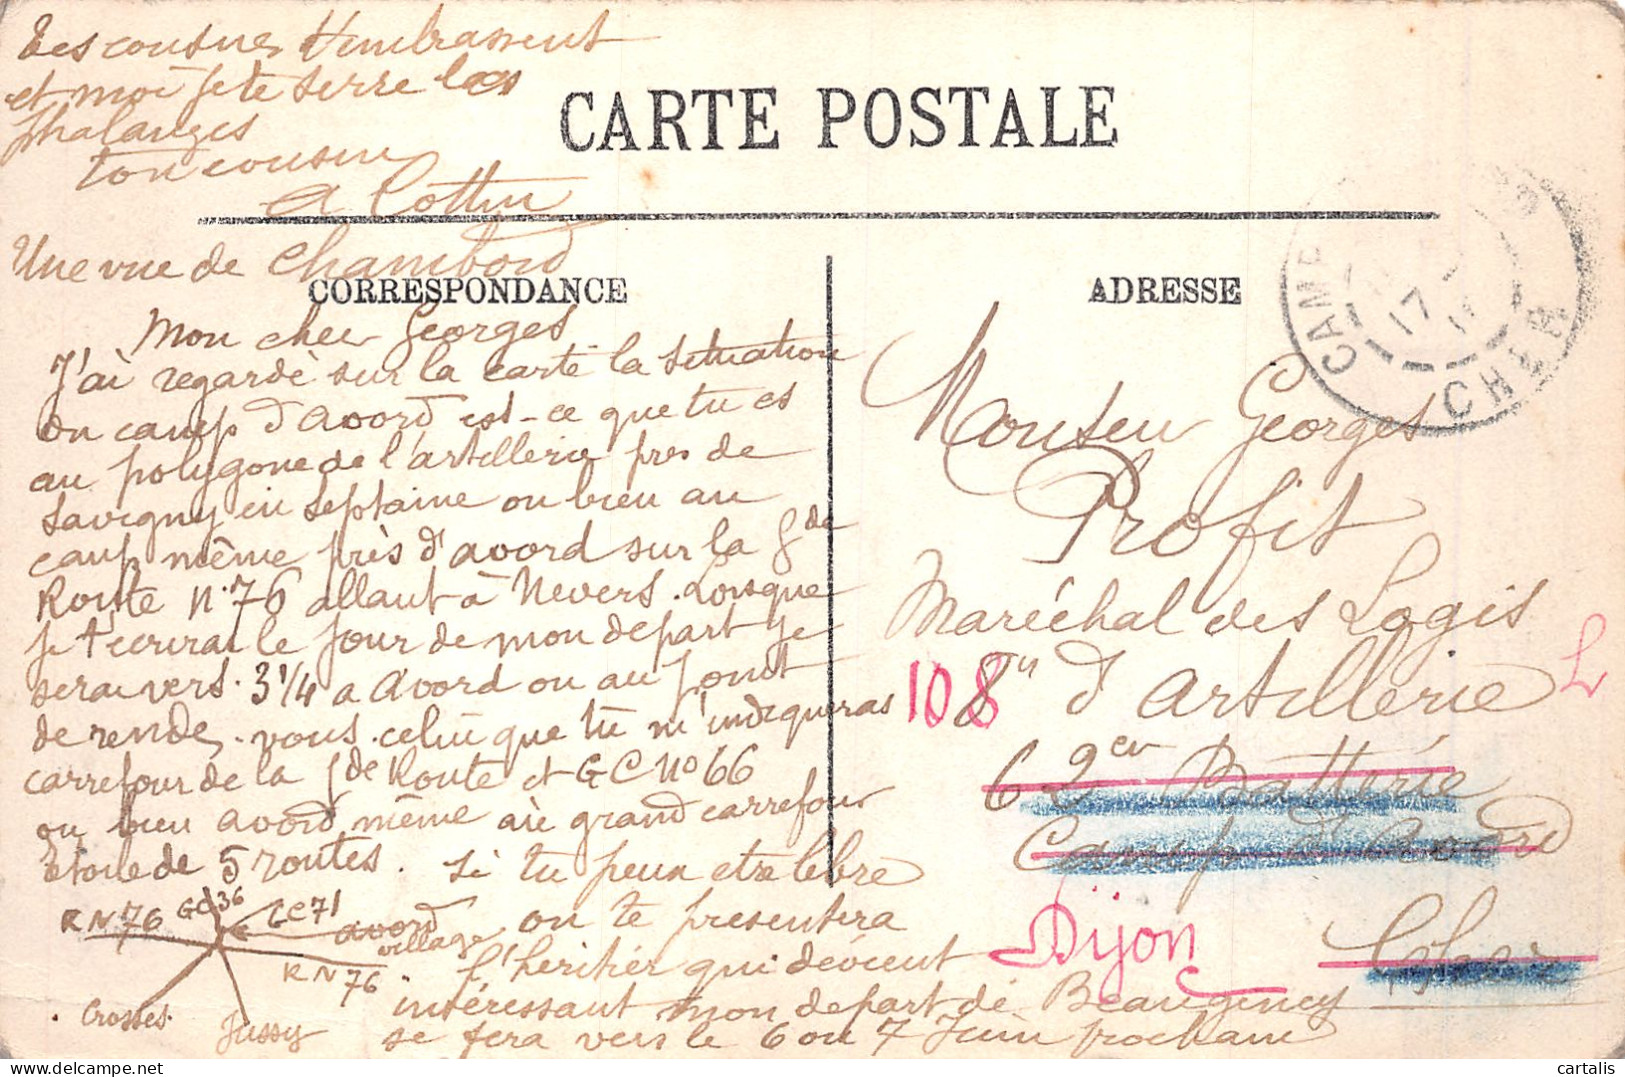 Tes cousines t'embrassent
et moi je te serre les
phalanges
ton cousin
A Cottin
CARTE POSTALE
Une vue de Chambord
CORRESPONDANCE
Mon cher Georges
J'ai regardé sur la carte la situation
du camp d'avord est-ce que tu es
au polygone de l'artillerie près de
Savigny en Septaine ou bien au
camp même près d'avord sur la gde
Route N.76 allant à Nevers. Lorsque
je t'ecrirai le jour de mon depart je
serai vers 3 1/4 a avord ou au point
de rendez-vous celui que tu m'indiqueras
carrefour de la gde Route et GC No 66
ou bien avord même au grand carrefour
Etoile de 5 routes. Si tu peux etre libre
on te presentera
l'héritier qui devient
intéressant mon depart de Beaugency
se fera vers le 6 ou 7 Juin prochain
RN 76 GC 36
GC 71
avord
village
RN 76
Crosses
Jussy
ADRESSE
CAMP
17
CHER
Monsieur Georges
Profit
Maréchal des Logis
108 d'Artillerie
L
62em Batterie
Camp d'Avord
Dijon
Cher
cartalis
delcampe.net